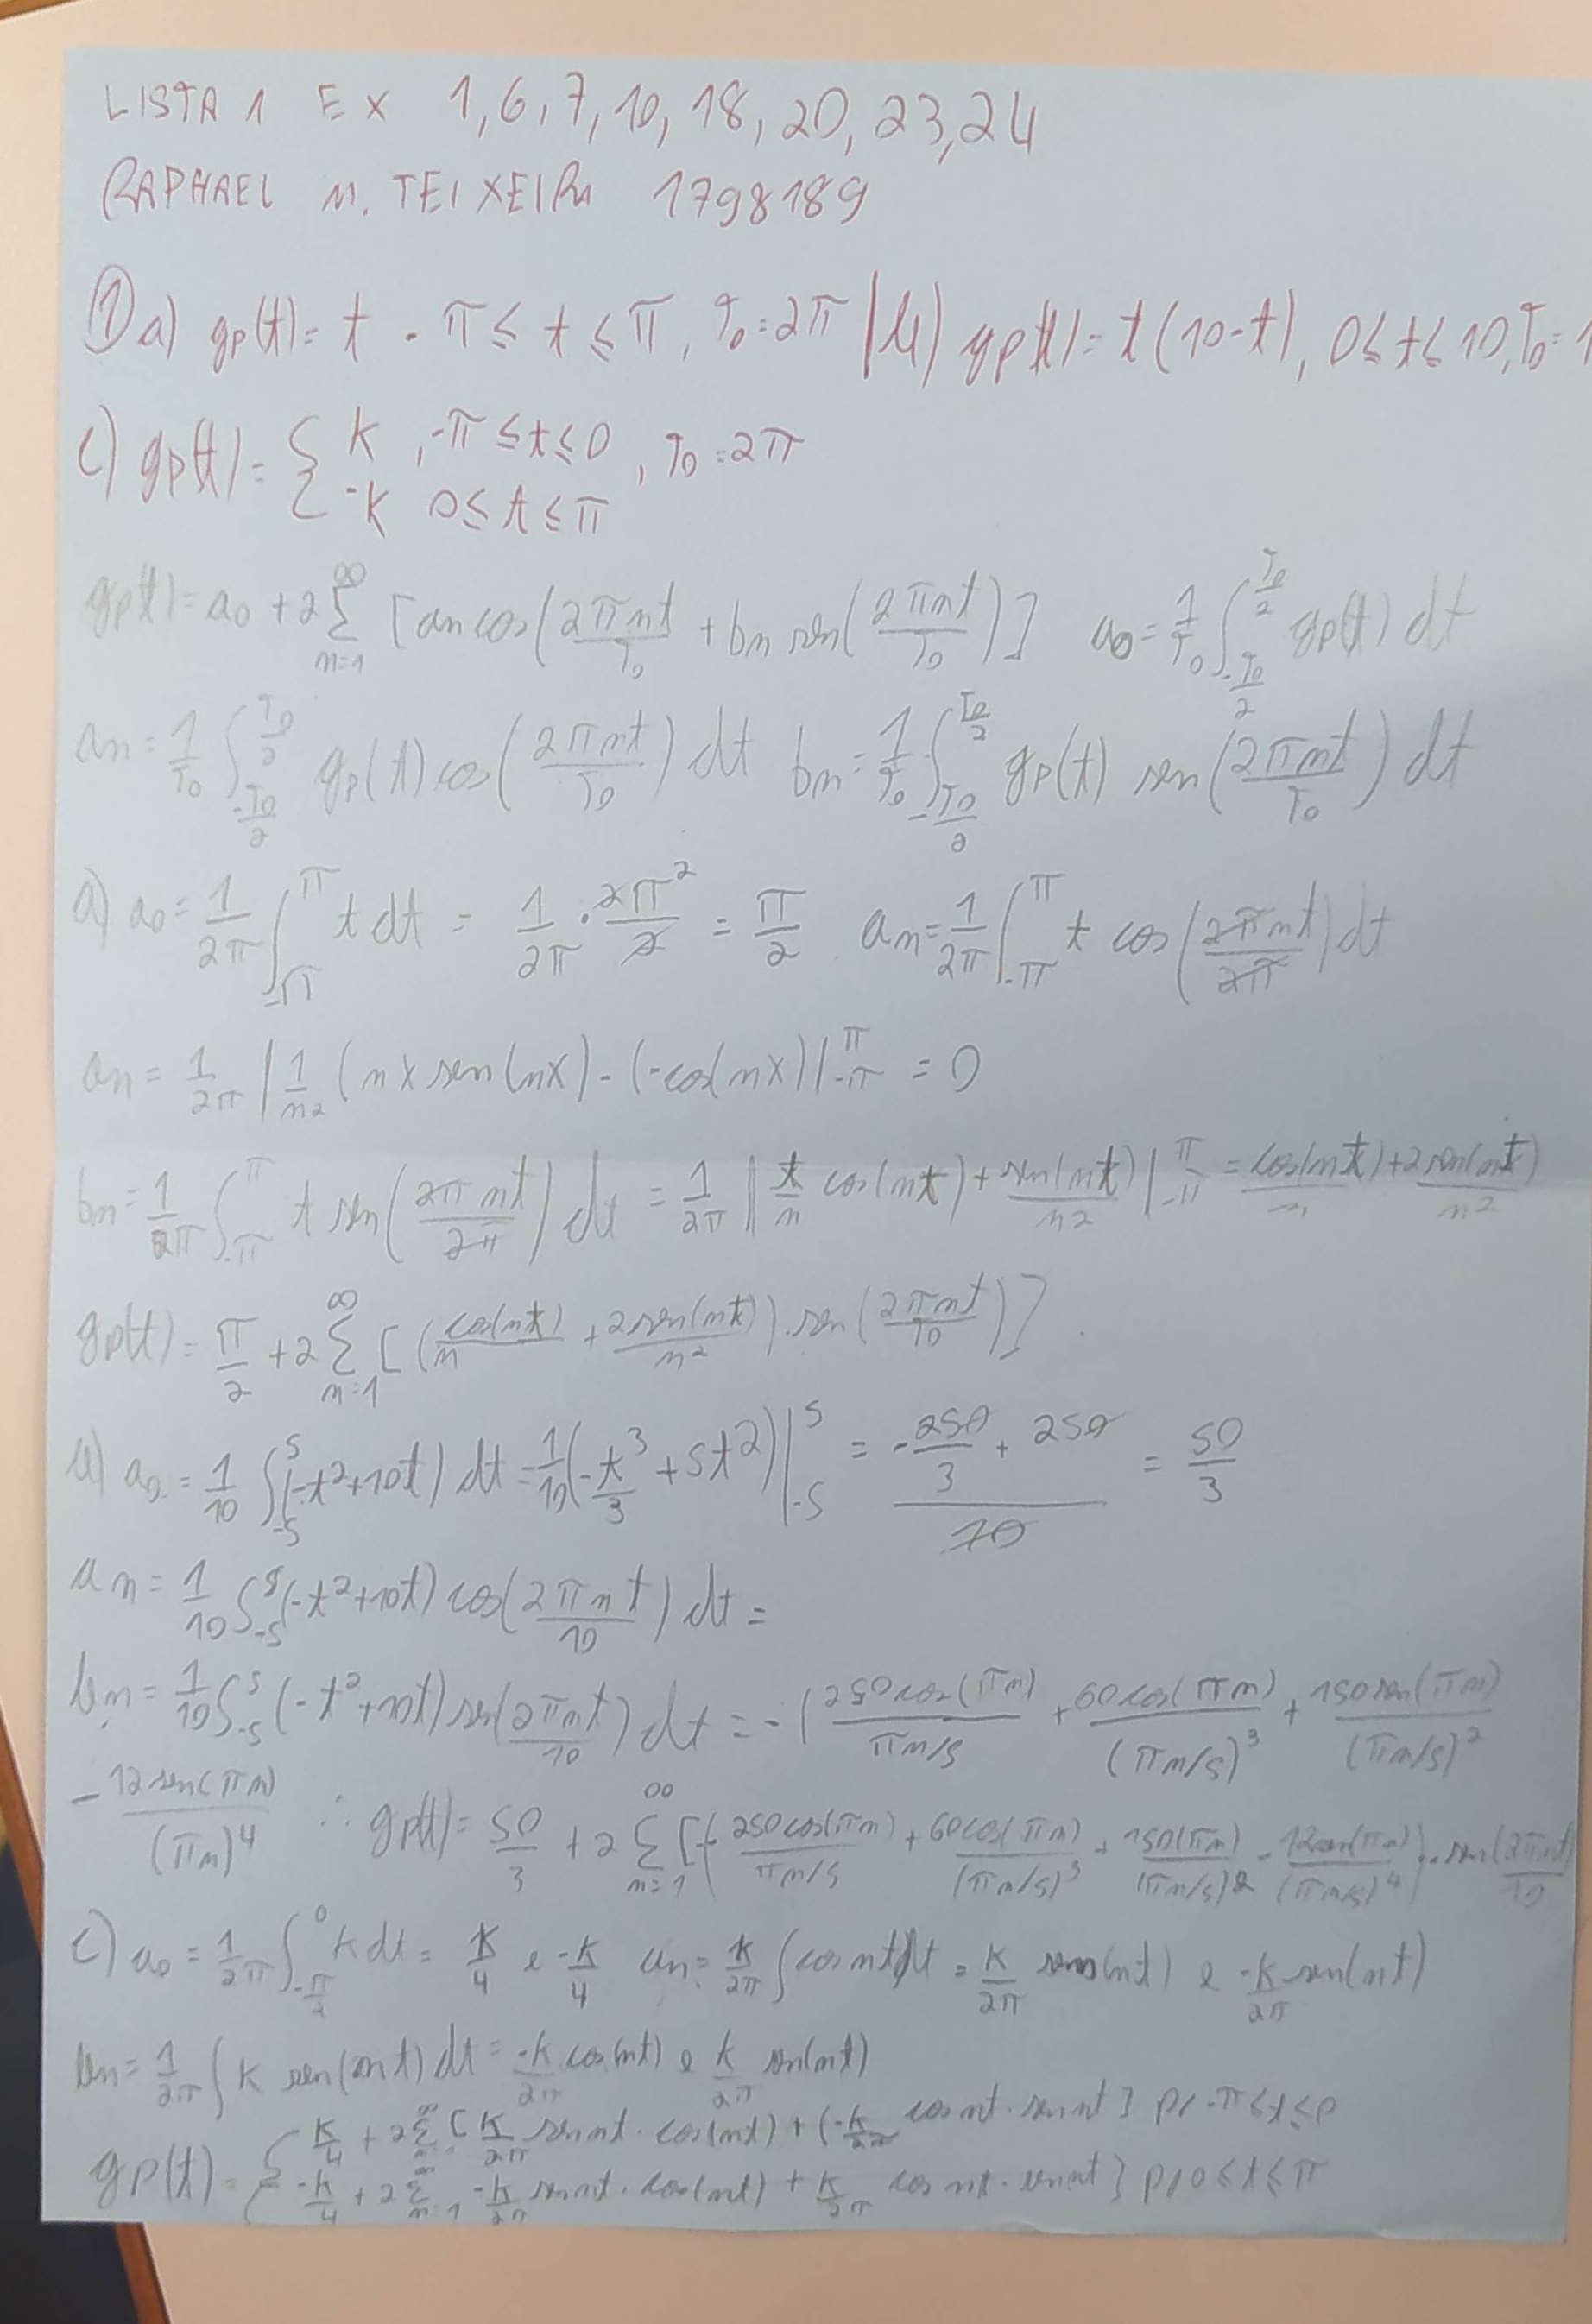 LISTA 1 EX 1,6,7,10,18,20,23,24
RAPHAEL M. TEIXEIRA 1798189
① a) gp(t)= t -π≤ t ≤π, T₀=2π | b) gp(t)= t(10-t), 0≤t≤10, T₀=1
c) gp(t)= { K, -π≤t≤0 ; -K 0≤t≤π , T₀=2π
gp(t)= a₀ + 2 Σ_{n=1}^{∞} [an cos(2πnt/T₀ + bn sen(2πnt/T₀)] a₀ = 1/T₀ ∫_{-T₀/2}^{T₀/2} gp(t) dt
an = 1/T₀ ∫_{-T₀/2}^{T₀/2} gp(t) cos(2πnt/T₀) dt bn = 1/T₀ ∫_{-T₀/2}^{T₀/2} gp(t) sen(2πnt/T₀) dt
a) a₀ = 1/2π ∫_{-π}^{π} t dt = 1/2π · 2π²/2 = π/2 an = 1/2π ∫_{-π}^{π} t cos(2πnt/2π) dt
an = 1/2π | 1/n² (nx sen(nx) - (-cos(nx)) |_{-π}^{π} = 0
bn = 1/2π ∫_{-π}^{π} t sen(2πnt/2π) dt = 1/2π | t/n cos(nt) + sen(nt)/n² |_{-π}^{π} = cos(nt)/n + 2sen(nt)/n²
gp(t) = π/2 + 2 Σ_{n=1}^{∞} [(cos(nt)/n + 2sen(nt)/n²) . sen(2πnt/T₀)]
b) a₀ = 1/10 ∫_{-5}^{5} (-t²+10t) dt = 1/10 (-t³/3 + 5t²) |_{-5}^{5} = (-250/3 + 250)/10 = 50/3
an = 1/10 ∫_{-5}^{5} (-t²+10t) cos(2πnt/10) dt =
bn = 1/10 ∫_{-5}^{5} (-t²+10t) sen(2πnt/10) dt = -(250cos(πn)/(πn/5) + 60cos(πn)/(πn/5)³ + 150sen(πn)/(πn/5)²
- 12sen(πn)/(πn)⁴ ∴ gp(t) = 50/3 + 2 Σ_{n=1}^{∞} [-(250cos(πn)/(πn/5) + 60cos(πn)/(πn/5)³ + 150(πn)/(πn/5)² - 12sen(πn)/(πn/5)⁴) . sen(2πnt/10)
c) a₀ = 1/2π ∫_{-π/2}^{0} K dt = K/4 e -K/4 an = K/2π ∫ cos nt dt = K/2π sen(nt) e -K/2π sen(nt)
bn = 1/2π ∫ K sen(nt) dt = -K/2π cos(nt) e K/2π sen(nt)
gp(t) = { K/4 + 2 Σ_{n=1}^{∞} [K/2π sen nt . cos(nt) + (-K/2π cos nt . sen nt] p/ -π≤t≤0
-K/4 + 2 Σ_{n=1}^{∞} -K/2π sen nt . cos(nt) + K/2π cos nt . sen nt] p/ 0≤t≤π